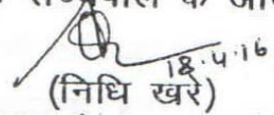 के
18.4.16
(निधि खरे)